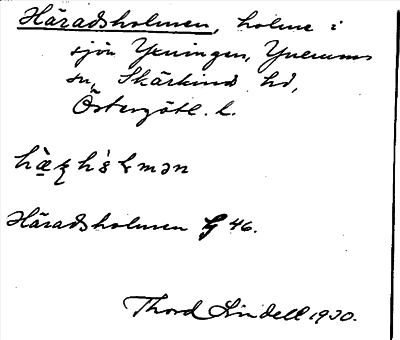 Häradsholmen, holme i
sjön Yxningen, Yxnerums
sn, Skärkinds hd,
Östergötl. l.
Häradsholmen G 46.
Thord Lindell 1930.